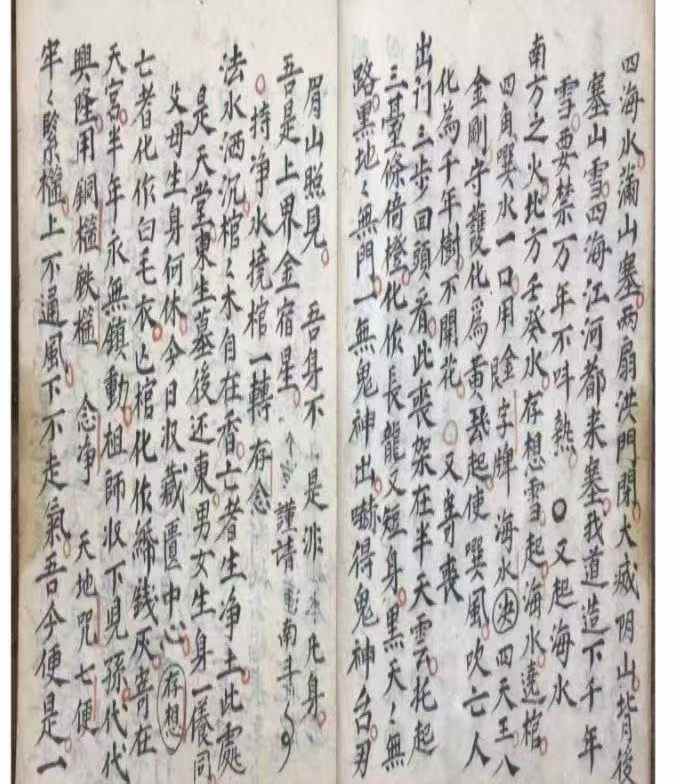 四海水滿山塞。兩扇洪門閉。大威陰山背後
塞山雪。四海江河都來塞。我道造下千年
雪。要禁万年不呌熱。〇又起海水
南方之火。北方壬癸水。存想雪起。海水遶棺
四角噀水一口。用金字牌 海水決四天王八
金剛守護。化爲黃。起使噀風。吹亡人
化為千年樹。不開花。〇又寄喪
出门三步回頭看。此喪架在半天雲。托起
三臺條倚橙。化作長龍又短身。黑天々無
路。黑地々無門。一無鬼神出。嚇得鬼神
眉山照見。 吾身不 是非 凡身。
吾是上界金宿星。 謹請 南斗
〇持净水撓棺一轉 存念
法水洒沉棺々木自在香。亡者生净土。此處
是天堂。東生墓後还東。男女生身一儀同
父母生身何休。今日収藏匱中心。存想
亡者化作白毛衣。已棺化作綿錢灰。寄在
天宮半年。永無鎮動。祖師収下見孫。代代
興隆。用銅櫙鉄櫙 念净 天地咒七便
牢々緊櫙。上不通風。下不走氣。吾今便是一